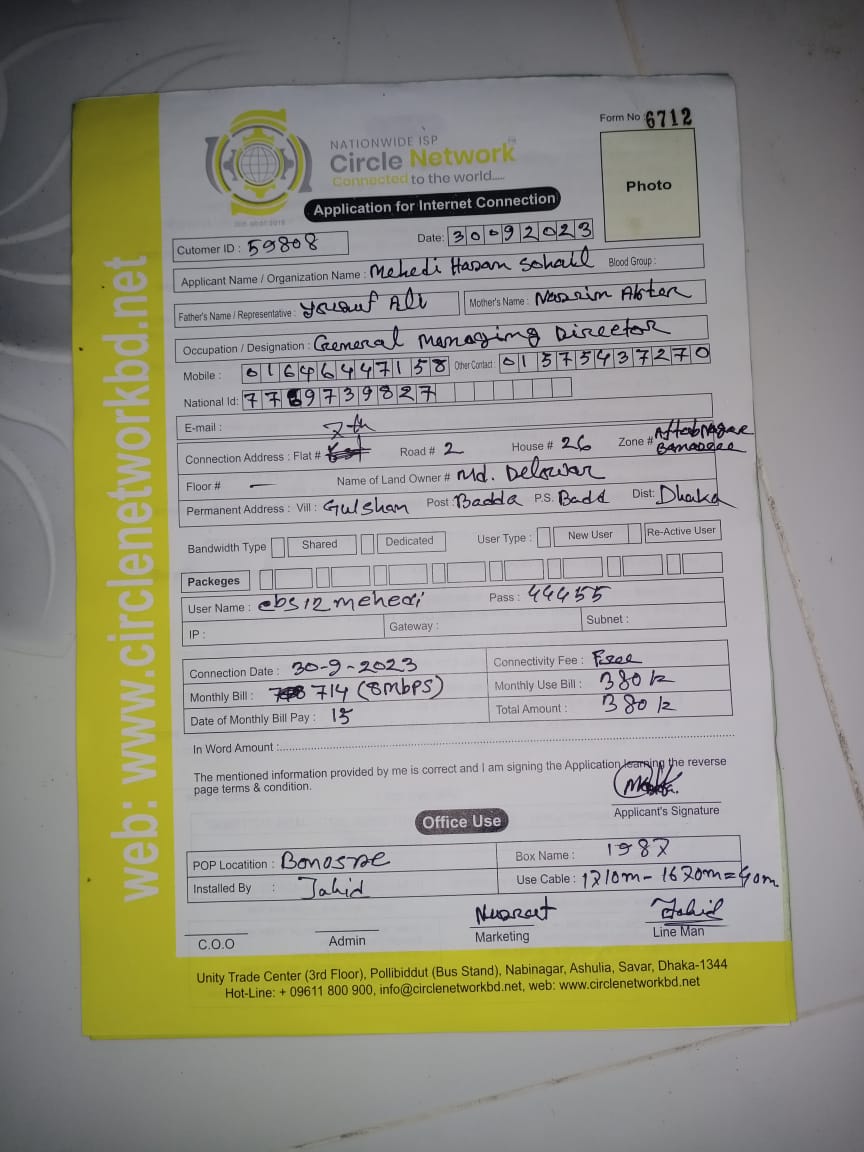 Form No 6712
NATIONWIDE ISP
Circle Network
Connected to the world.....
Photo
Application for Internet Connection
Cutomer ID : 59808
Date: 30092023
Applicant Name / Organization Name : Mehedi Hasan Sohail Blood Group :
Father's Name / Representative : Yousuf Ali Mother's Name : Nasrin Akter
Occupation / Designation : General Managing Director
Mobile : 01646447158 Other Contact : 01575437270
National Id: 7769739827
E-mail :
Connection Address : Flat # 7th Road # 2 House # 26 Zone # Aftabnagar
Floor # — Name of Land Owner # Md. Delowar
Permanent Address : Vill : Gulshan Post : Badda P.S. Badd Dist: Dhaka
Bandwidth Type Shared Dedicated User Type : New User Re-Active User
Packeges
User Name : cbs12mehedi Pass : 44455
IP : Gateway : Subnet :
Connection Date : 30-9-2023 Connectivity Fee : Free
Monthly Bill : 714 (8mbps) Monthly Use Bill : 380
Date of Monthly Bill Pay : 15 Total Amount : 380
In Word Amount :
The mentioned information provided by me is correct and I am signing the Application learning the reverse
page terms & condition.
Applicant's Signature
Office Use
POP Locatition : Box Name : 1987
Installed By : Jahid Use Cable : 1210m - 1620m = 40m
Nusrat Jahid
C.O.O Admin Marketing Line Man
Unity Trade Center (3rd Floor), Pollibiddut (Bus Stand), Nabinagar, Ashulia, Savar, Dhaka-1344
Hot-Line: + 09611 800 900, info@circlenetworkbd.net, web: www.circlenetworkbd.net
web: www.circlenetworkbd.net